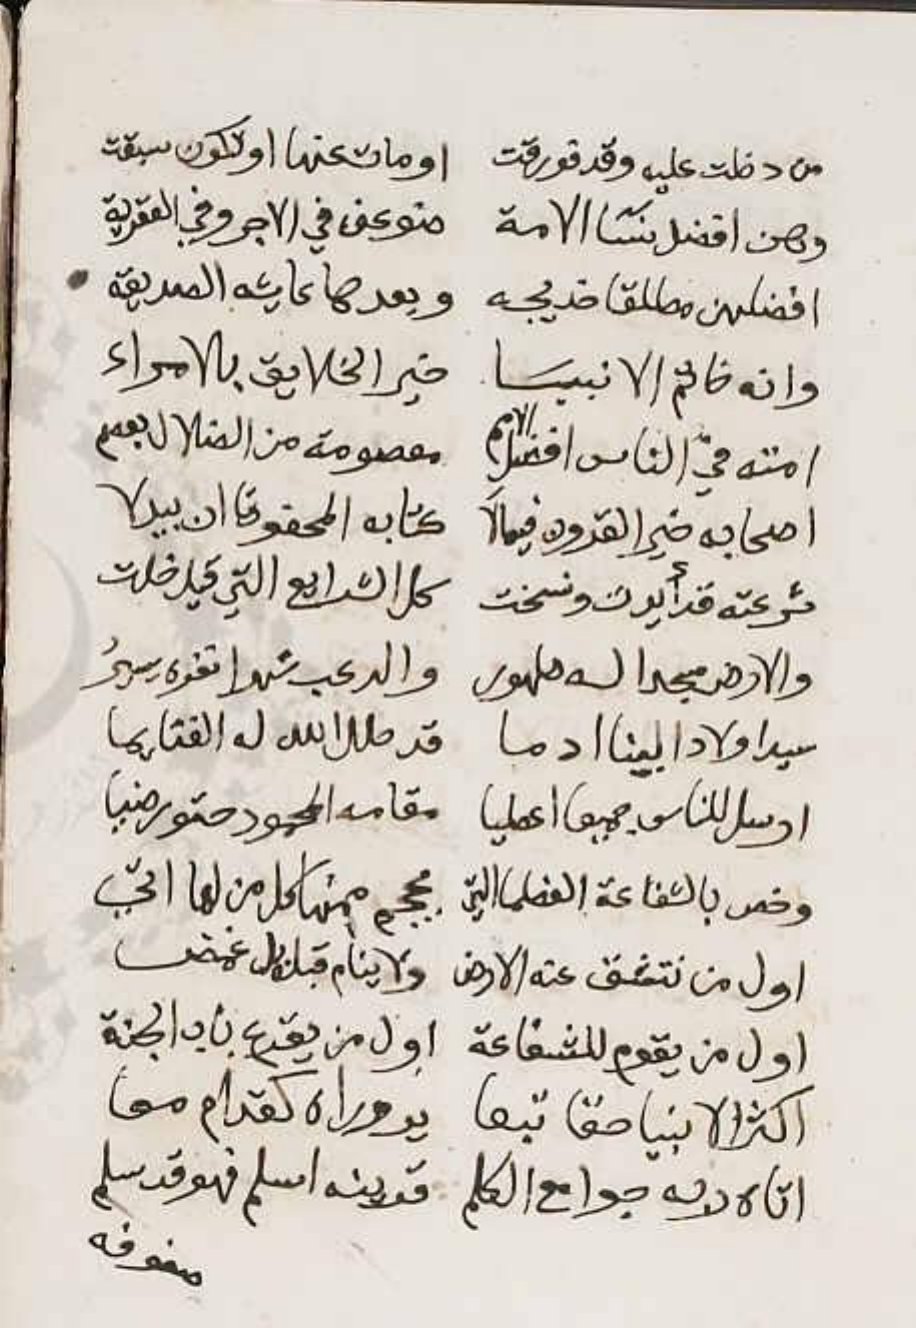 من دخلت عليه وقد فورقت او مات عنها او تكون سبقت
وهن افضل نسآ الامة ضوعفن في الاجر وفي العقوبة
افضلهن مطلقا خديجه وبعدها عايشه الصديقة
وانه خاتم الانبيسا خير الخلايق بلا امراء
امته في الناس افضل الامم معصومة من الضلال بعصم
اصحابه خير القرون فيملا كتابه المحفوظ ان يبدلا
شرعته قد أيدت ونسخت كل الشرايع التي قبل خلت
والارض مسجدا له طهور والرعب شهرا نصره يسير
سيد اولاد ابينا ادما قد حلل الله له الغنايما
ارسل للناس جميعا اعطيا مقامه المحمود حتى رضيا
وخص بالشفاعة العظما التي يحجم عنها كل من لها اتي
اول من تنشق عنه الارض ولا ينام قبله بل غمض
اول من يقوم للشفاعة اول من يقرع باب الجنة
اكثر الانبيا حقا تبعا يري وراه كقدام معا
اتاه ربه جوامع الكلم قرينه اسلم فهو قد سلم
صفوفه